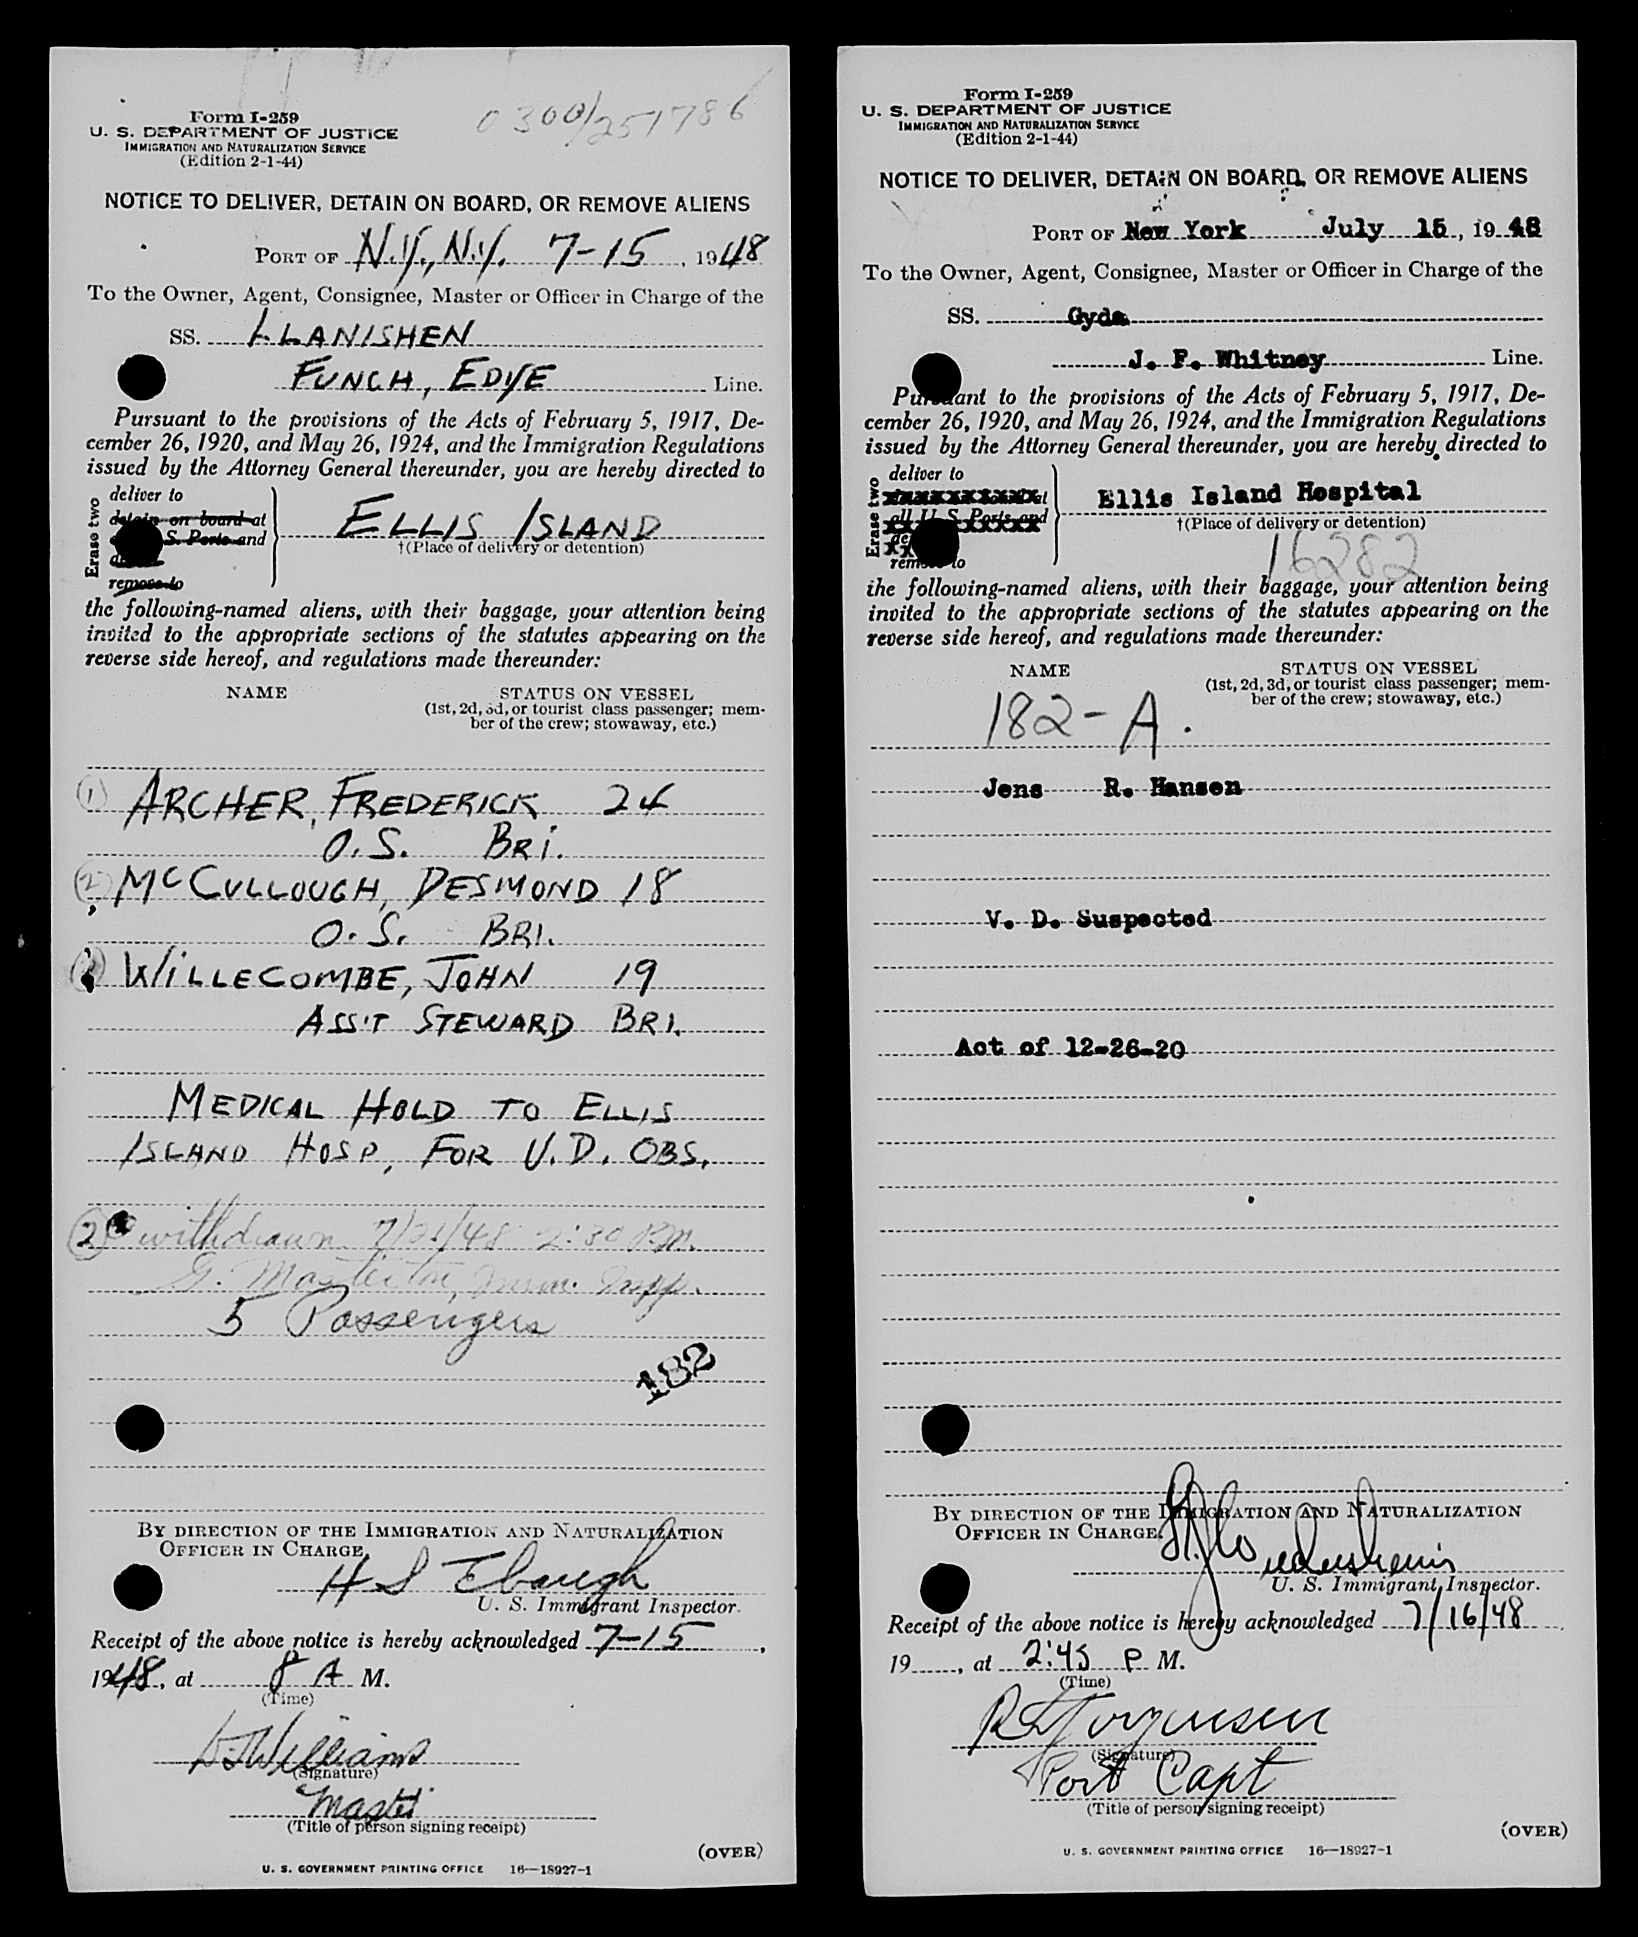 Form I-259
U. S. DEPARTMENT OF JUSTICE
IMMIGRATION AND NATURALIZATION SERVICE
(Edition 2-1-44)
0300/251786
NOTICE TO DELIVER, DETAIN ON BOARD, OR REMOVE ALIENS
PORT OF N.Y., N.Y. 7-15, 1948
To the Owner, Agent, Consignee, Master or Officer in Charge of the
SS. LLANISHEN
FUNCH, EDYE Line.
Pursuant to the provisions of the Acts of February 5, 1917, De-
cember 26, 1920, and May 26, 1924, and the Immigration Regulations
issued by the Attorney General thereunder, you are hereby directed to
Erase two
deliver to
detain on board at
S. Ports and
remove to
ELLIS ISLAND
†(Place of delivery or detention)
the following-named aliens, with their baggage, your attention being
invited to the appropriate sections of the statutes appearing on the
reverse side hereof, and regulations made thereunder:
NAME STATUS ON VESSEL
(1st, 2d, 3d, or tourist class passenger; mem-
ber of the crew; stowaway, etc.)
1 ARCHER, FREDERICK 24
O.S. BRI.
2 McCULLOUGH, DESMOND 18
O.S. BRI.
WILLECOMBE, JOHN 19
ASS'T STEWARD BRI.
MEDICAL HOLD TO ELLIS
ISLAND HOSP, FOR V.D. OBS.
2 withdrawn 7/21/48 2:30 P.M.
G. Masterton, Imm. Insp.
5 Passengers
182
BY DIRECTION OF THE IMMIGRATION AND NATURALIZATION
OFFICER IN CHARGE
H S Ebaugh
U. S. Immigrant Inspector.
Receipt of the above notice is hereby acknowledged 7-15,
1948, at 8 A M.
(Time)
Williams
(Signature)
Master
(Title of person signing receipt)
(OVER)
U. S. GOVERNMENT PRINTING OFFICE 16—18927-1
Form I-259
U. S. DEPARTMENT OF JUSTICE
IMMIGRATION AND NATURALIZATION SERVICE
(Edition 2-1-44)
NOTICE TO DELIVER, DETAIN ON BOARD, OR REMOVE ALIENS
PORT OF New York July 15, 1948
To the Owner, Agent, Consignee, Master or Officer in Charge of the
SS. Gyda
J. F. Whitney Line.
Pursuant to the provisions of the Acts of February 5, 1917, De-
cember 26, 1920, and May 26, 1924, and the Immigration Regulations
issued by the Attorney General thereunder, you are hereby directed to
Erase two
deliver to
all U. S. Ports and
remove to
Ellis Island Hospital
†(Place of delivery or detention)
16282
the following-named aliens, with their baggage, your attention being
invited to the appropriate sections of the statutes appearing on the
reverse side hereof, and regulations made thereunder:
NAME STATUS ON VESSEL
(1st, 2d, 3d, or tourist class passenger; mem-
ber of the crew; stowaway, etc.)
182-A.
Jens R. Hansen
V. D. Suspected
Act of 12-26-20
BY DIRECTION OF THE IMMIGRATION AND NATURALIZATION
OFFICER IN CHARGE.
U. S. Immigrant Inspector.
Receipt of the above notice is hereby acknowledged 7/16/48
19, at 2:45 P M.
(Time)
Jorgensen
(Signature)
Port Capt
(Title of person signing receipt)
(OVER)
U. S. GOVERNMENT PRINTING OFFICE 16—18927-1